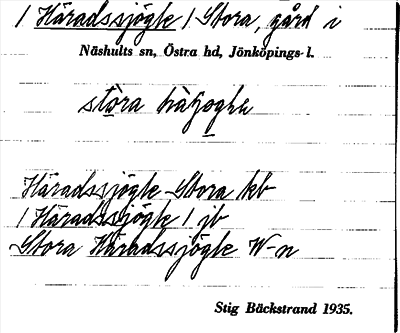 / Häradssjögle / Stora, gård i
Näshults sn, Östra hd, Jönköpings l.
stora
Häradssjögle Stora kb
/ Häradssjögle / jb
Stora Häradssjögle W-n
Stig Bäckstrand 1935.